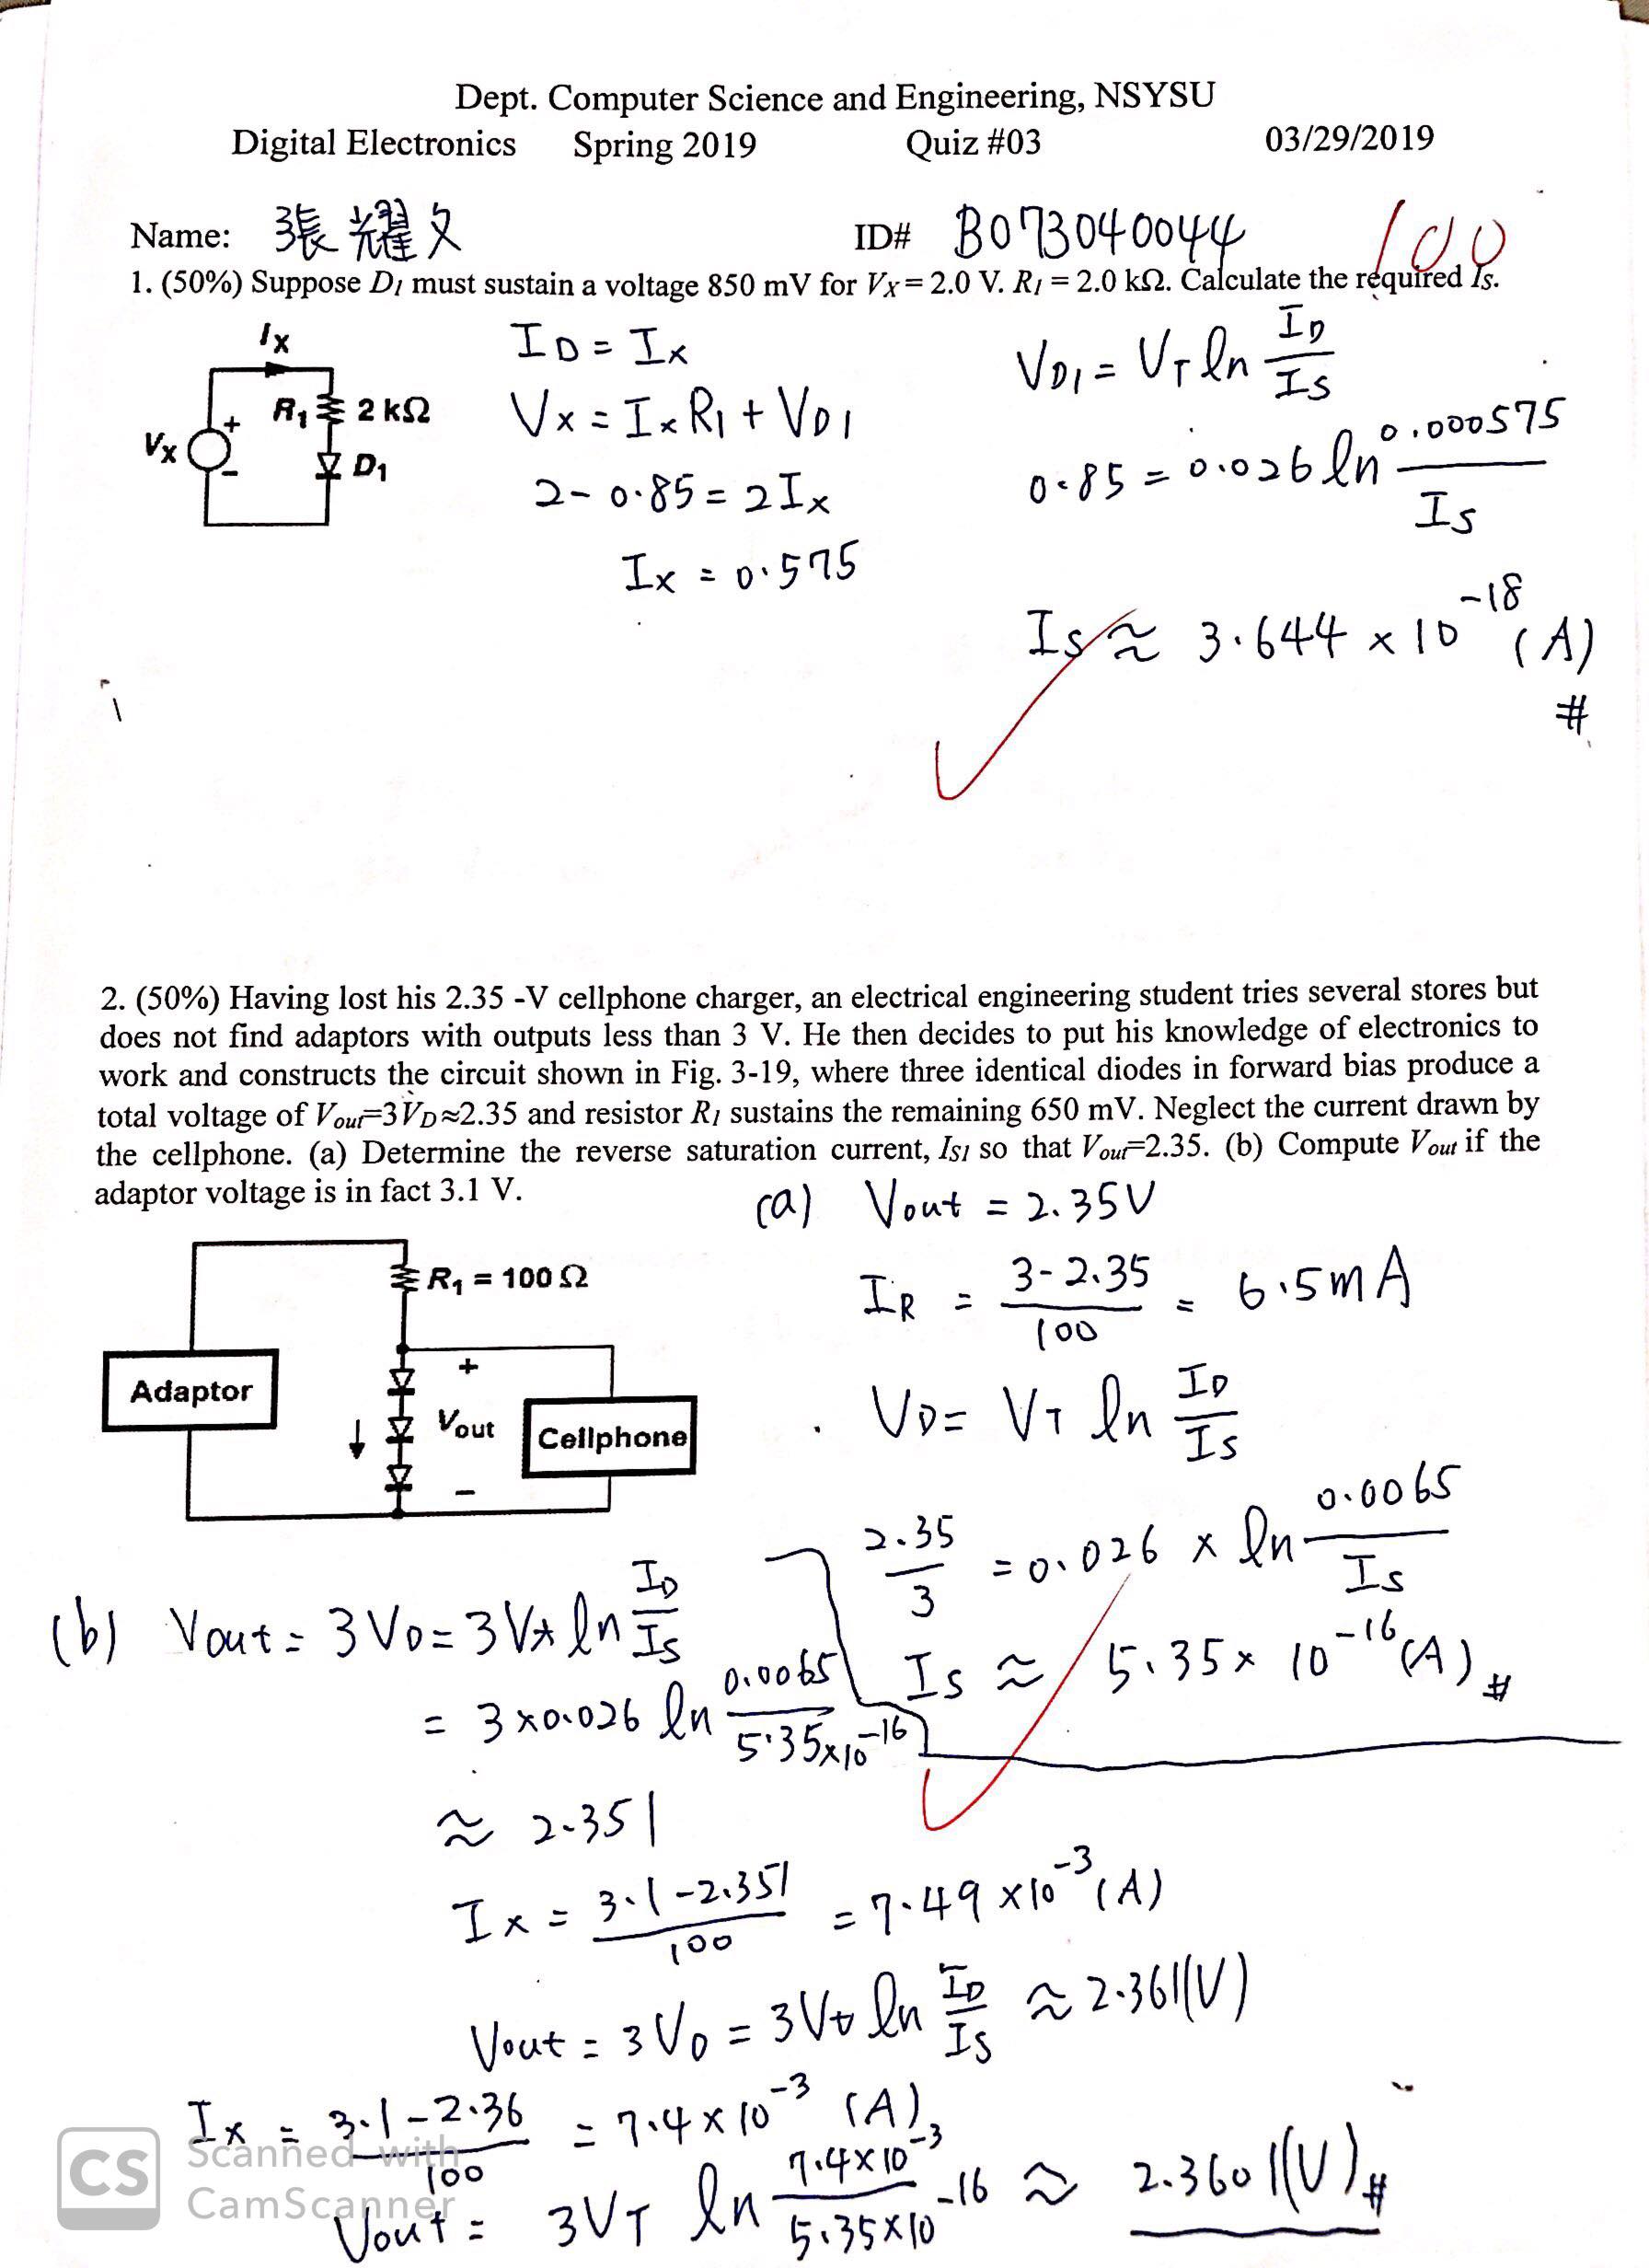 Dept. Computer Science and Engineering, NSYSU
Digital Electronics Spring 2019 Quiz #03 03/29/2019
Name: 張耀文 ID# B073040044 100
1. (50%) Suppose D₁ must sustain a voltage 850 mV for Vx = 2.0 V. R₁ = 2.0 kΩ. Calculate the required Is.
Ix
R₁ 2 kΩ
Vx + -
D₁
I_D = Ix
Vx = Ix R₁ + V_D1
2 - 0.85 = 2Ix
Ix = 0.575
V_D1 = V_T ln I_D/Is
0.85 = 0.026 ln 0.000575/Is
Is ≈ 3.644 × 10⁻¹⁸ (A)
#
2. (50%) Having lost his 2.35 -V cellphone charger, an electrical engineering student tries several stores but
does not find adaptors with outputs less than 3 V. He then decides to put his knowledge of electronics to
work and constructs the circuit shown in Fig. 3-19, where three identical diodes in forward bias produce a
total voltage of Vout=3V_D≈2.35 and resistor R₁ sustains the remaining 650 mV. Neglect the current drawn by
the cellphone. (a) Determine the reverse saturation current, Is₁ so that Vout=2.35. (b) Compute Vout if the
adaptor voltage is in fact 3.1 V.
R₁ = 100 Ω
Adaptor
+
Vout
-
Cellphone
(a) Vout = 2.35V
I_R = 3-2.35/100 = 6.5mA
V_D = V_T ln I_D/Is
2.35/3 = 0.026 × ln 0.0065/Is
Is ≈ 5.35 × 10⁻¹⁶ (A) #
(b) Vout = 3V_D = 3V_t ln I_D/Is
= 3×0.026 ln 0.0065/5.35×10⁻¹⁶
≈ 2.351
Ix = 3.1-2.351/100 = 7.49 ×10⁻³ (A)
Vout = 3V_D = 3V_t ln I_D/Is ≈ 2.361(V)
Ix = 3.1-2.36/100 = 7.4 × 10⁻³ (A)
Vout = 3V_T ln 7.4×10⁻³/5.35×10⁻¹⁶ ≈ 2.3601(V) #
CS
Scanned with
CamScanner